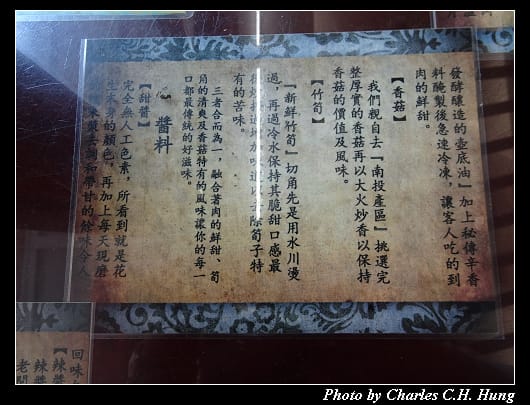 發酵釀造的壺底油』加上秘傳辛香
料醃製後急速冷凍，讓客人吃的到
肉的鮮甜。
【香菇】
我們親自去『南投產區』挑選完
整厚實的香菇再以大火炒香以保持
香菇的價值及風味。
【竹筍】
『新鮮竹筍』切角先是用水川燙
過，再過冷水保持其脆甜口感最
後炒
去除筍子特
有的苦味。
三者合而為一，融合著肉的鮮甜、筍
角的清爽及香菇特有的風味讓你的每一
口都最傳統的好滋味。
醬料
【甜醬】
完全無人工色素，所看到就是花
生本身的顏色，再加上每天現磨
米漿去調和帶甘的餘味令人
回味
【辣醬】
辣醬
老闆
Photo by Charles C.H. Hung